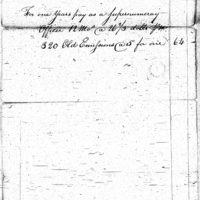 For one Years pay as a Supernumeray
Officer 12 Mos. @ 26 2/3 dolls pr. Mo.
320 Old Emissions @ 5 for one 64